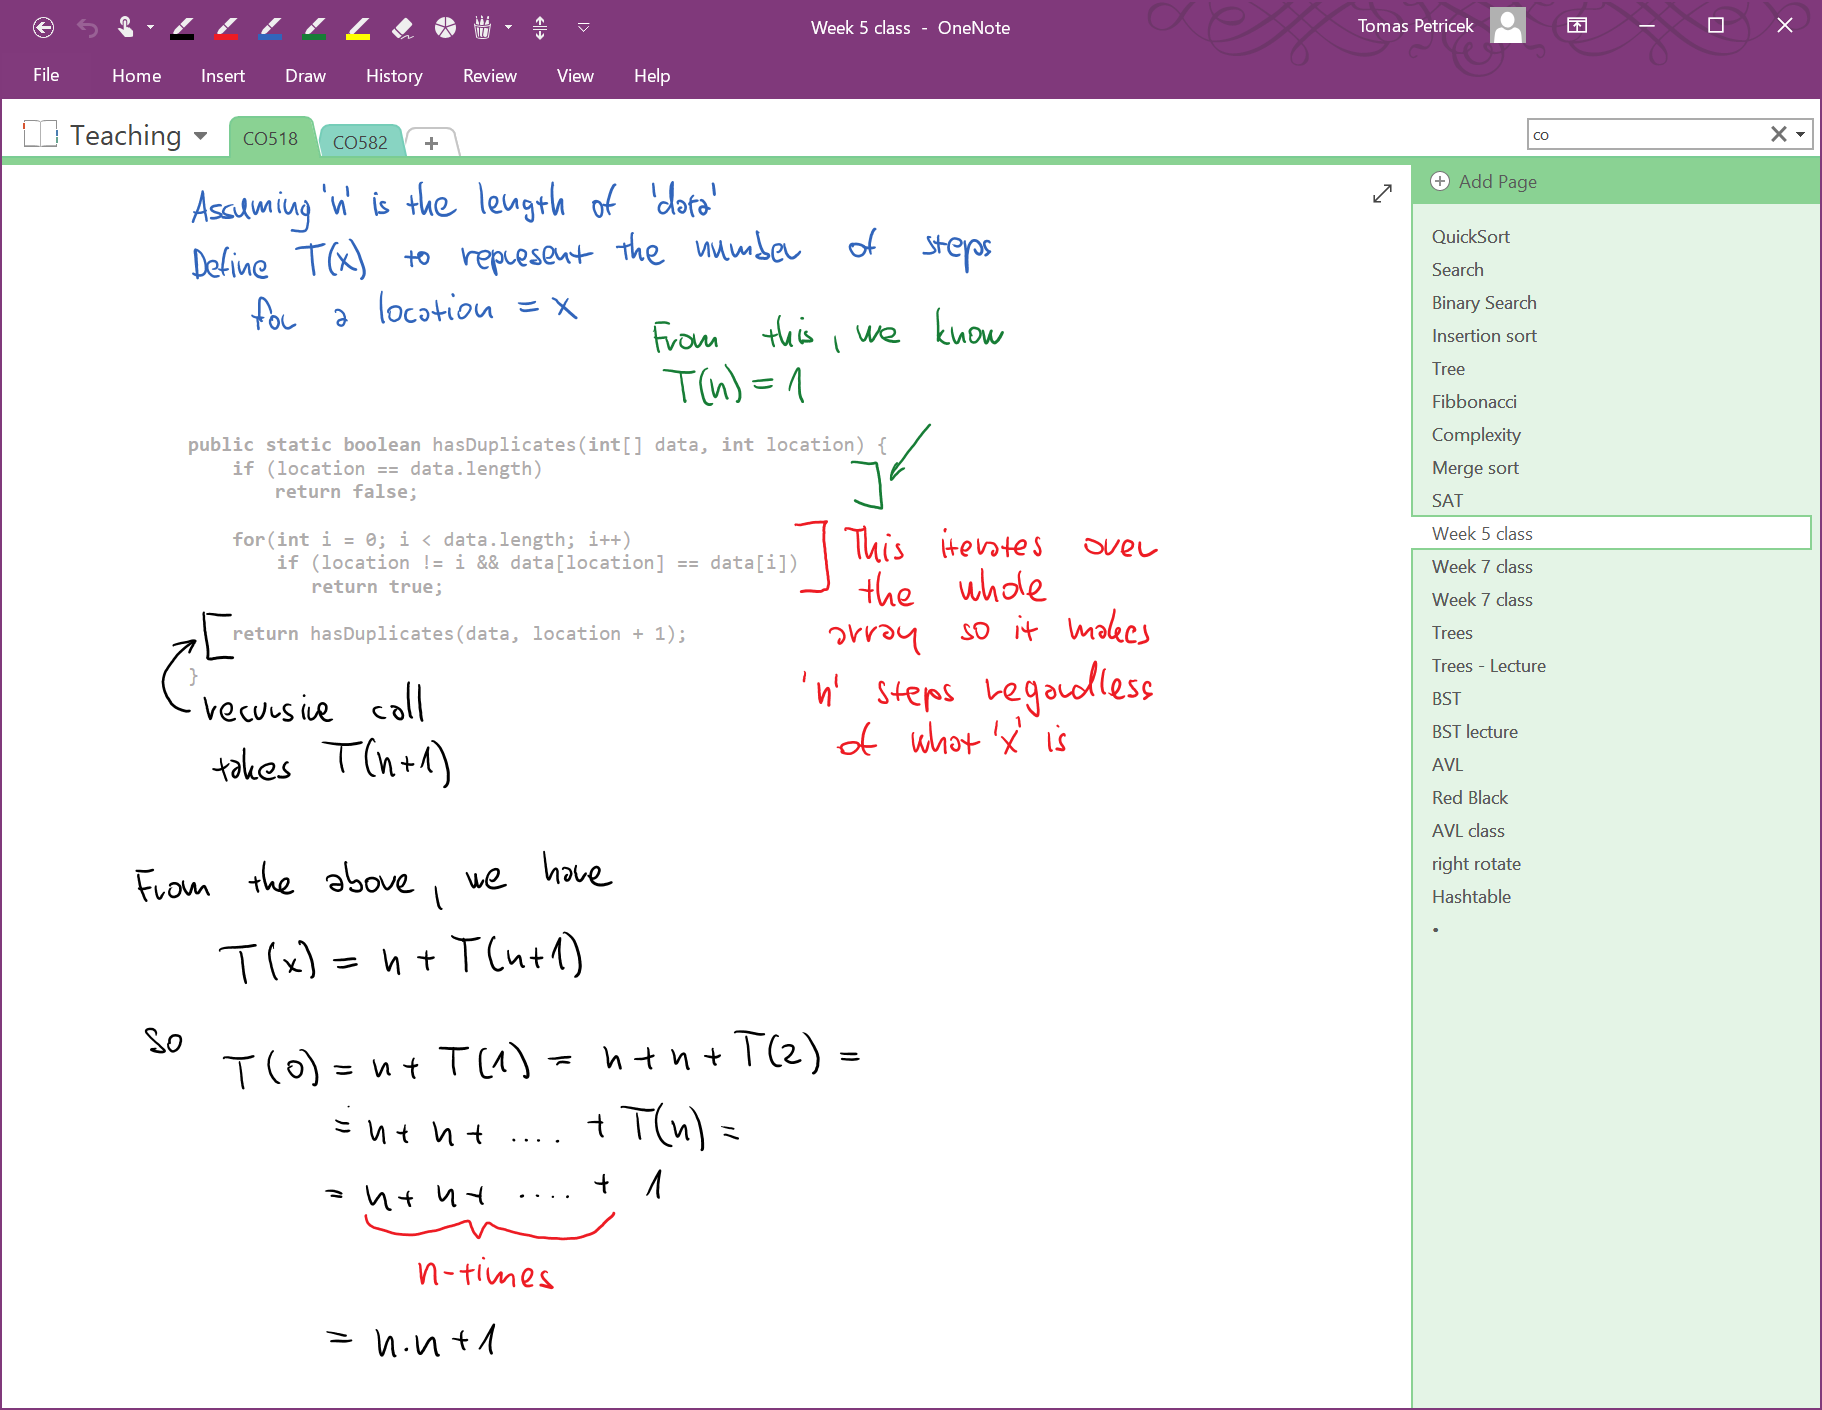 Week 5 class - OneNote
Tomas Petricek
File Home Insert Draw History Review View Help
Teaching
CO518
CO582
+
co
Add Page
Assuming 'n' is the length of 'data'
Define T(x) to represent the number of steps
for a location = x
From this, we know
T(n) = 1
public static boolean hasDuplicates(int[] data, int location) {
if (location == data.length)
return false;
for(int i = 0; i < data.length; i++)
if (location != i && data[location] == data[i])
return true;
return hasDuplicates(data, location + 1);
}
This iterates over
the whole
array so it makes
'n' steps regardless
of what 'x' is
recursive call
takes T(n+1)
From the above, we have
T(x) = n + T(n+1)
So
T(0) = n + T(1) = n + n + T(2) =
= n + n + .... + T(n) =
= n + n + .... + 1
n-times
= n.n + 1
QuickSort
Search
Binary Search
Insertion sort
Tree
Fibbonacci
Complexity
Merge sort
SAT
Week 5 class
Week 7 class
Week 7 class
Trees
Trees - Lecture
BST
BST lecture
AVL
Red Black
AVL class
right rotate
Hashtable
•